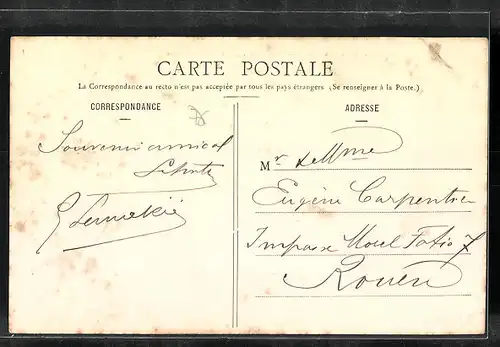 CARTE POSTALE
La Correspondance au recto n'est pas acceptée par tous les pays étrangers. (Se renseigner à la Poste.)
CORRESPONDANCE
ADRESSE
Souvenir amical
Mr et Mme
Eugène Carpentier
Impasse Morel Fatio 7
Rouen